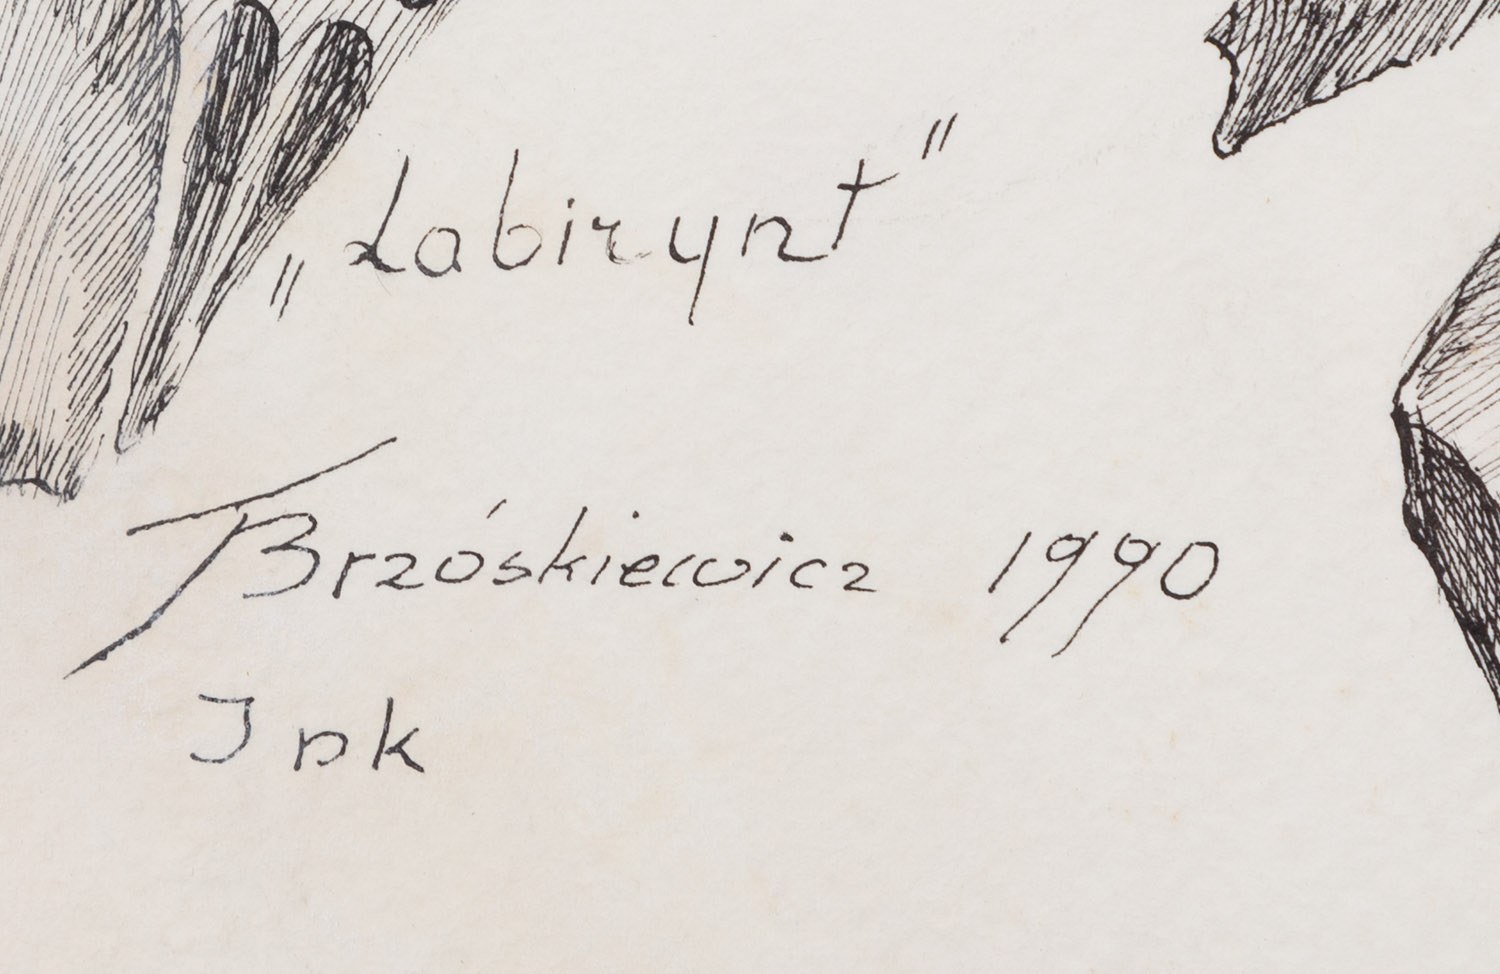 „Labirynt"
TBrzóskiewicz 1990
Ink